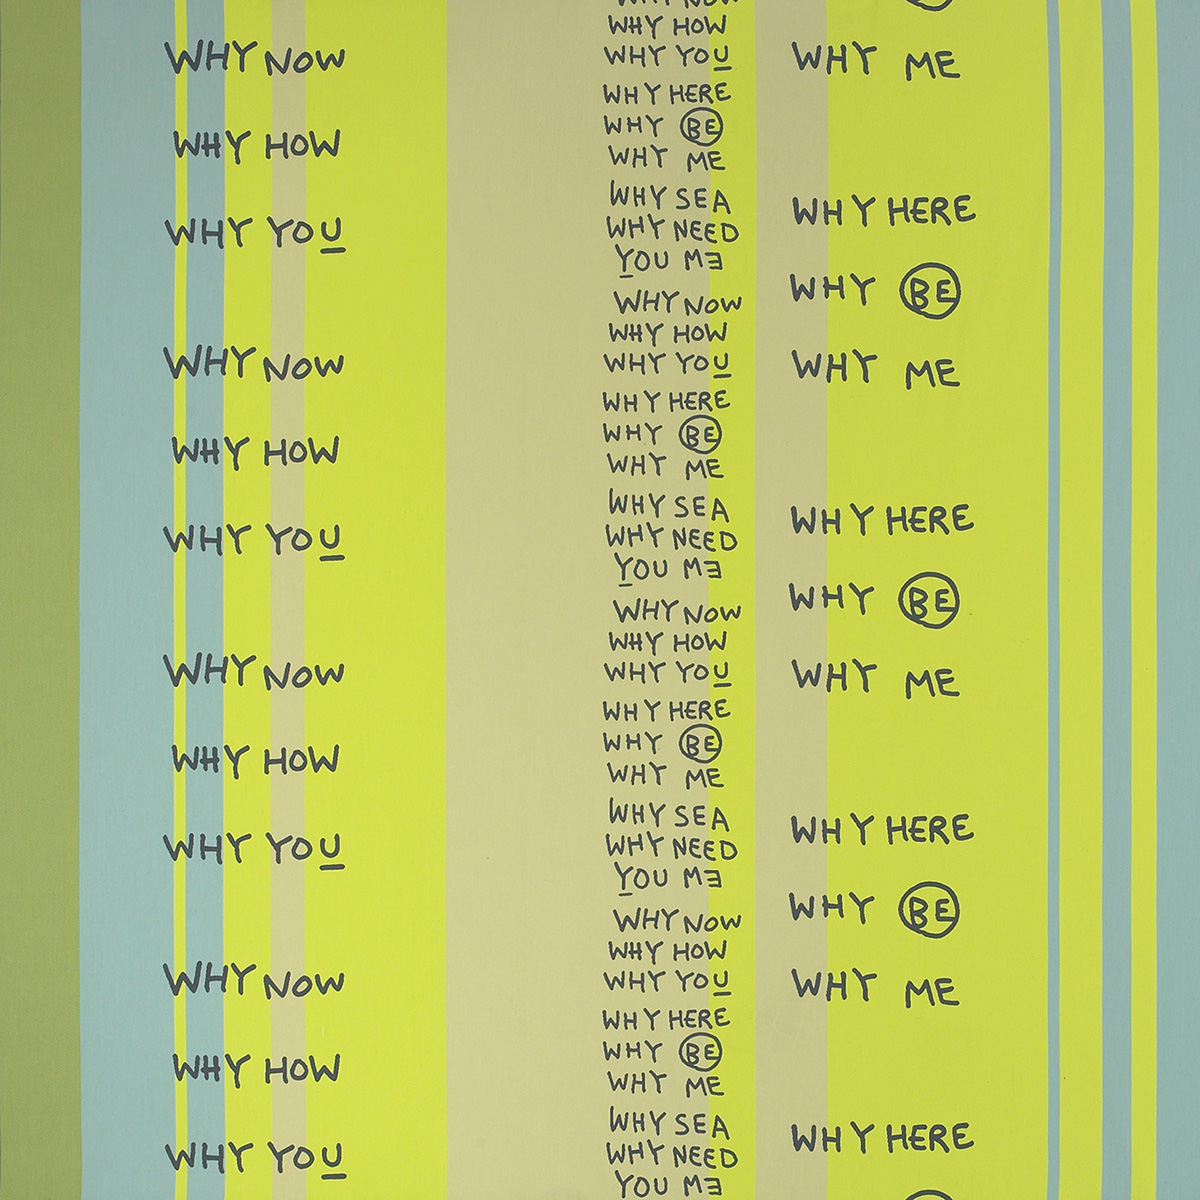 WHY NOW
WHY HOW
WHY YOU
WHY NOW
WHY HOW
WHY YOU
WHY NOW
WHY HOW
WHY YOU
WHY NOW
WHY HOW
WHY YOU
WHY NOW
WHY HOW
WHY YOU
WHY HERE
WHY BE
WHY ME
WHY SEA
WHY NEED
YOU MƎ
WHY NOW
WHY HOW
WHY YOU
WHY HERE
WHY BE
WHY ME
WHY SEA
WHY NEED
YOU MƎ
WHY NOW
WHY HOW
WHY YOU
WHY HERE
WHY BE
WHY ME
WHY SEA
WHY NEED
YOU MƎ
WHY NOW
WHY HOW
WHY YOU
WHY HERE
WHY BE
WHY ME
WHY SEA
WHY NEED
YOU MƎ
WHY ME
WHY HERE
WHY BE
WHY ME
WHY HERE
WHY BE
WHY ME
WHY HERE
WHY BE
WHY ME
WHY HERE